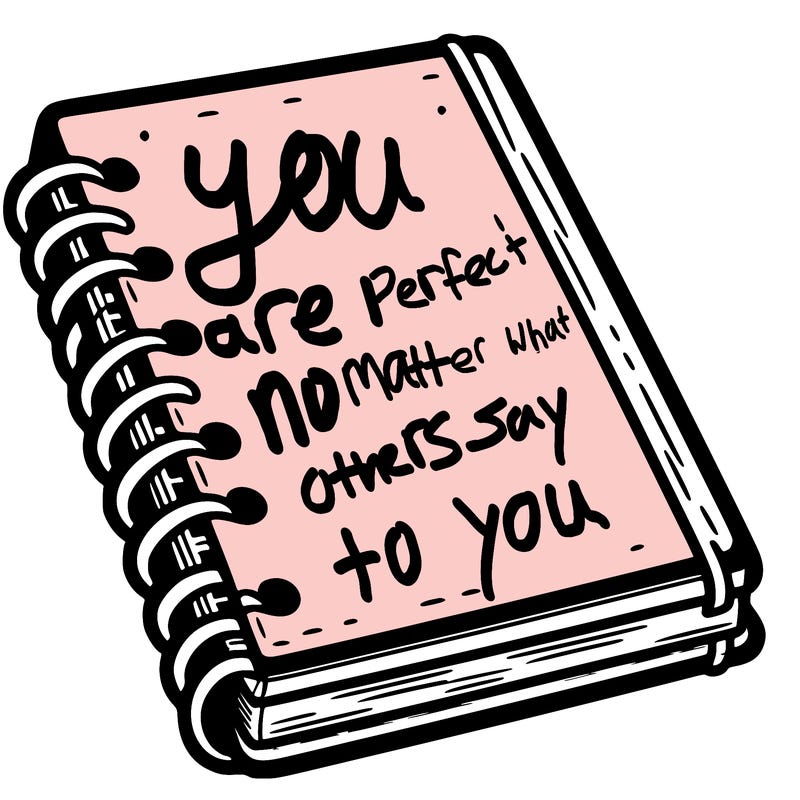 you
are perfect
no matter what
others say
to you